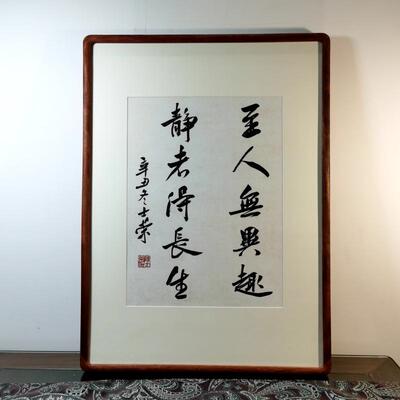 至人無異趣
静者得長生
辛丑冬士荣